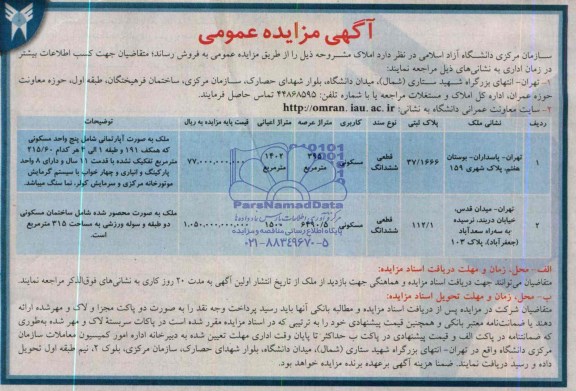 آگهی مزایده عمومی
سازمان مرکزی دانشگاه آزاد اسلامی در نظر دارد املاک مشروحه ذیل را از طریق مزایده عمومی به فروش رساند؛ متقاضیان جهت کسب اطلاعات بیشتر
در زمان اداری به نشانی‌های ذیل مراجعه نمایند:
۱- تهران- انتهای بزرگراه شهید ستاری (شمال)، میدان دانشگاه، بلوار شهدای حصارک، سازمان مرکزی، ساختمان فرهیختگان، طبقه اول، حوزه معاونت
حوزه عمران، اداره کل املاک و مستغلات مراجعه یا با شماره تلفن: ۴۴۸۶۸۵۹۵ تماس حاصل فرمایند.
۲- سایت معاونت عمرانی دانشگاه به نشانی: http://omran.iau.ac.ir
ردیف نشانی ملک پلاک ثبتی نوع سند کاربری متراژ عرصه متراژ اعیانی قیمت پایه مزایده به ریال توضیحات
۱ تهران- پاسداران- بوستان هفتم، پلاک شهری ۱۵۹ ۳۷/۱۶۶۶ قطعی ششدانگ مسکونی ۳۹۵ مترمربع ۱۴۰۲ مترمربع ۷۷,۰۰۰,۰۰۰,۰۰۰ ملک به صورت آپارتمانی شامل پنج واحد مسکونی
که همکف ۱۹۱ و طبقه ۱ الی ۴ هر کدام ۲۱۵/۶۰
مترمربع تفکیک نشده با قدمت ۱۱ سال و دارای ۸ واحد
پارکینگ و انباری و چهار خواب با سیستم گرمایش
موتورخانه مرکزی و سرمایش کولر، نما سنگ میباشد.
۲ تهران- میدان قدس، خیابان دربند، نرسیده به سه‌راه سعدآباد (جعفرآباد)، پلاک ۱۰۳ ۱۱۲/۱ قطعی ششدانگ مسکونی ۶۴۹۰/۵ ۱۵۰۰ ۱,۰۵۰,۰۰۰,۰۰۰,۰۰۰ ملک به صورت محصور شده شامل ساختمان مسکونی
دو طبقه و سوله ورزشی به مساحت ۳۱۵ مترمربع
است.
ParsNamadData
پایگاه اطلاع رسانی مناقصه و مزایده
۰۲۱-۸۸۳۴۹۶۷۰-۵
الف- محل، زمان و مهلت دریافت اسناد مزایده:
متقاضیان می‌توانند جهت دریافت اسناد مزایده و هماهنگی جهت بازدید از ملک از تاریخ انتشار اولین آگهی به مدت ۲۰ روز کاری به نشانی‌های فوق‌الذکر مراجعه نمایند.
ب- محل، زمان و مهلت تحویل اسناد مزایده:
متقاضیان شرکت در مزایده پس از دریافت اسناد مزایده و مطالبه بانکی آنها باید رسید پرداخت وجه نقد را به صورت دو پاکت مجزا و لاک و مهرشده ارائه
دهند با ضمانت‌نامه معتبر بانکی و همچنین قیمت پیشنهادی خود را به ترتیبی که در اسناد مزایده مقرر شده است در پاکات سربستهٔ لاک و مهر شده به‌طوری
که ضمانتنامه در پاکت الف و قیمت پیشنهادی در پاکت ب حداکثر تا پایان وقت اداری مهلت تعیین شده به دبیرخانه اداره امور کمیسیون معاملات سازمان
مرکزی دانشگاه واقع در تهران- انتهای بزرگراه شهید ستاری (شمال)، میدان دانشگاه، بلوار شهدای حصارک، سازمان مرکزی، بلوک ۲، نیم طبقه اول تحویل
داده و رسید دریافت نمایند. ضمنا هزینه آگهی برعهده برنده مزایده خواهد بود.